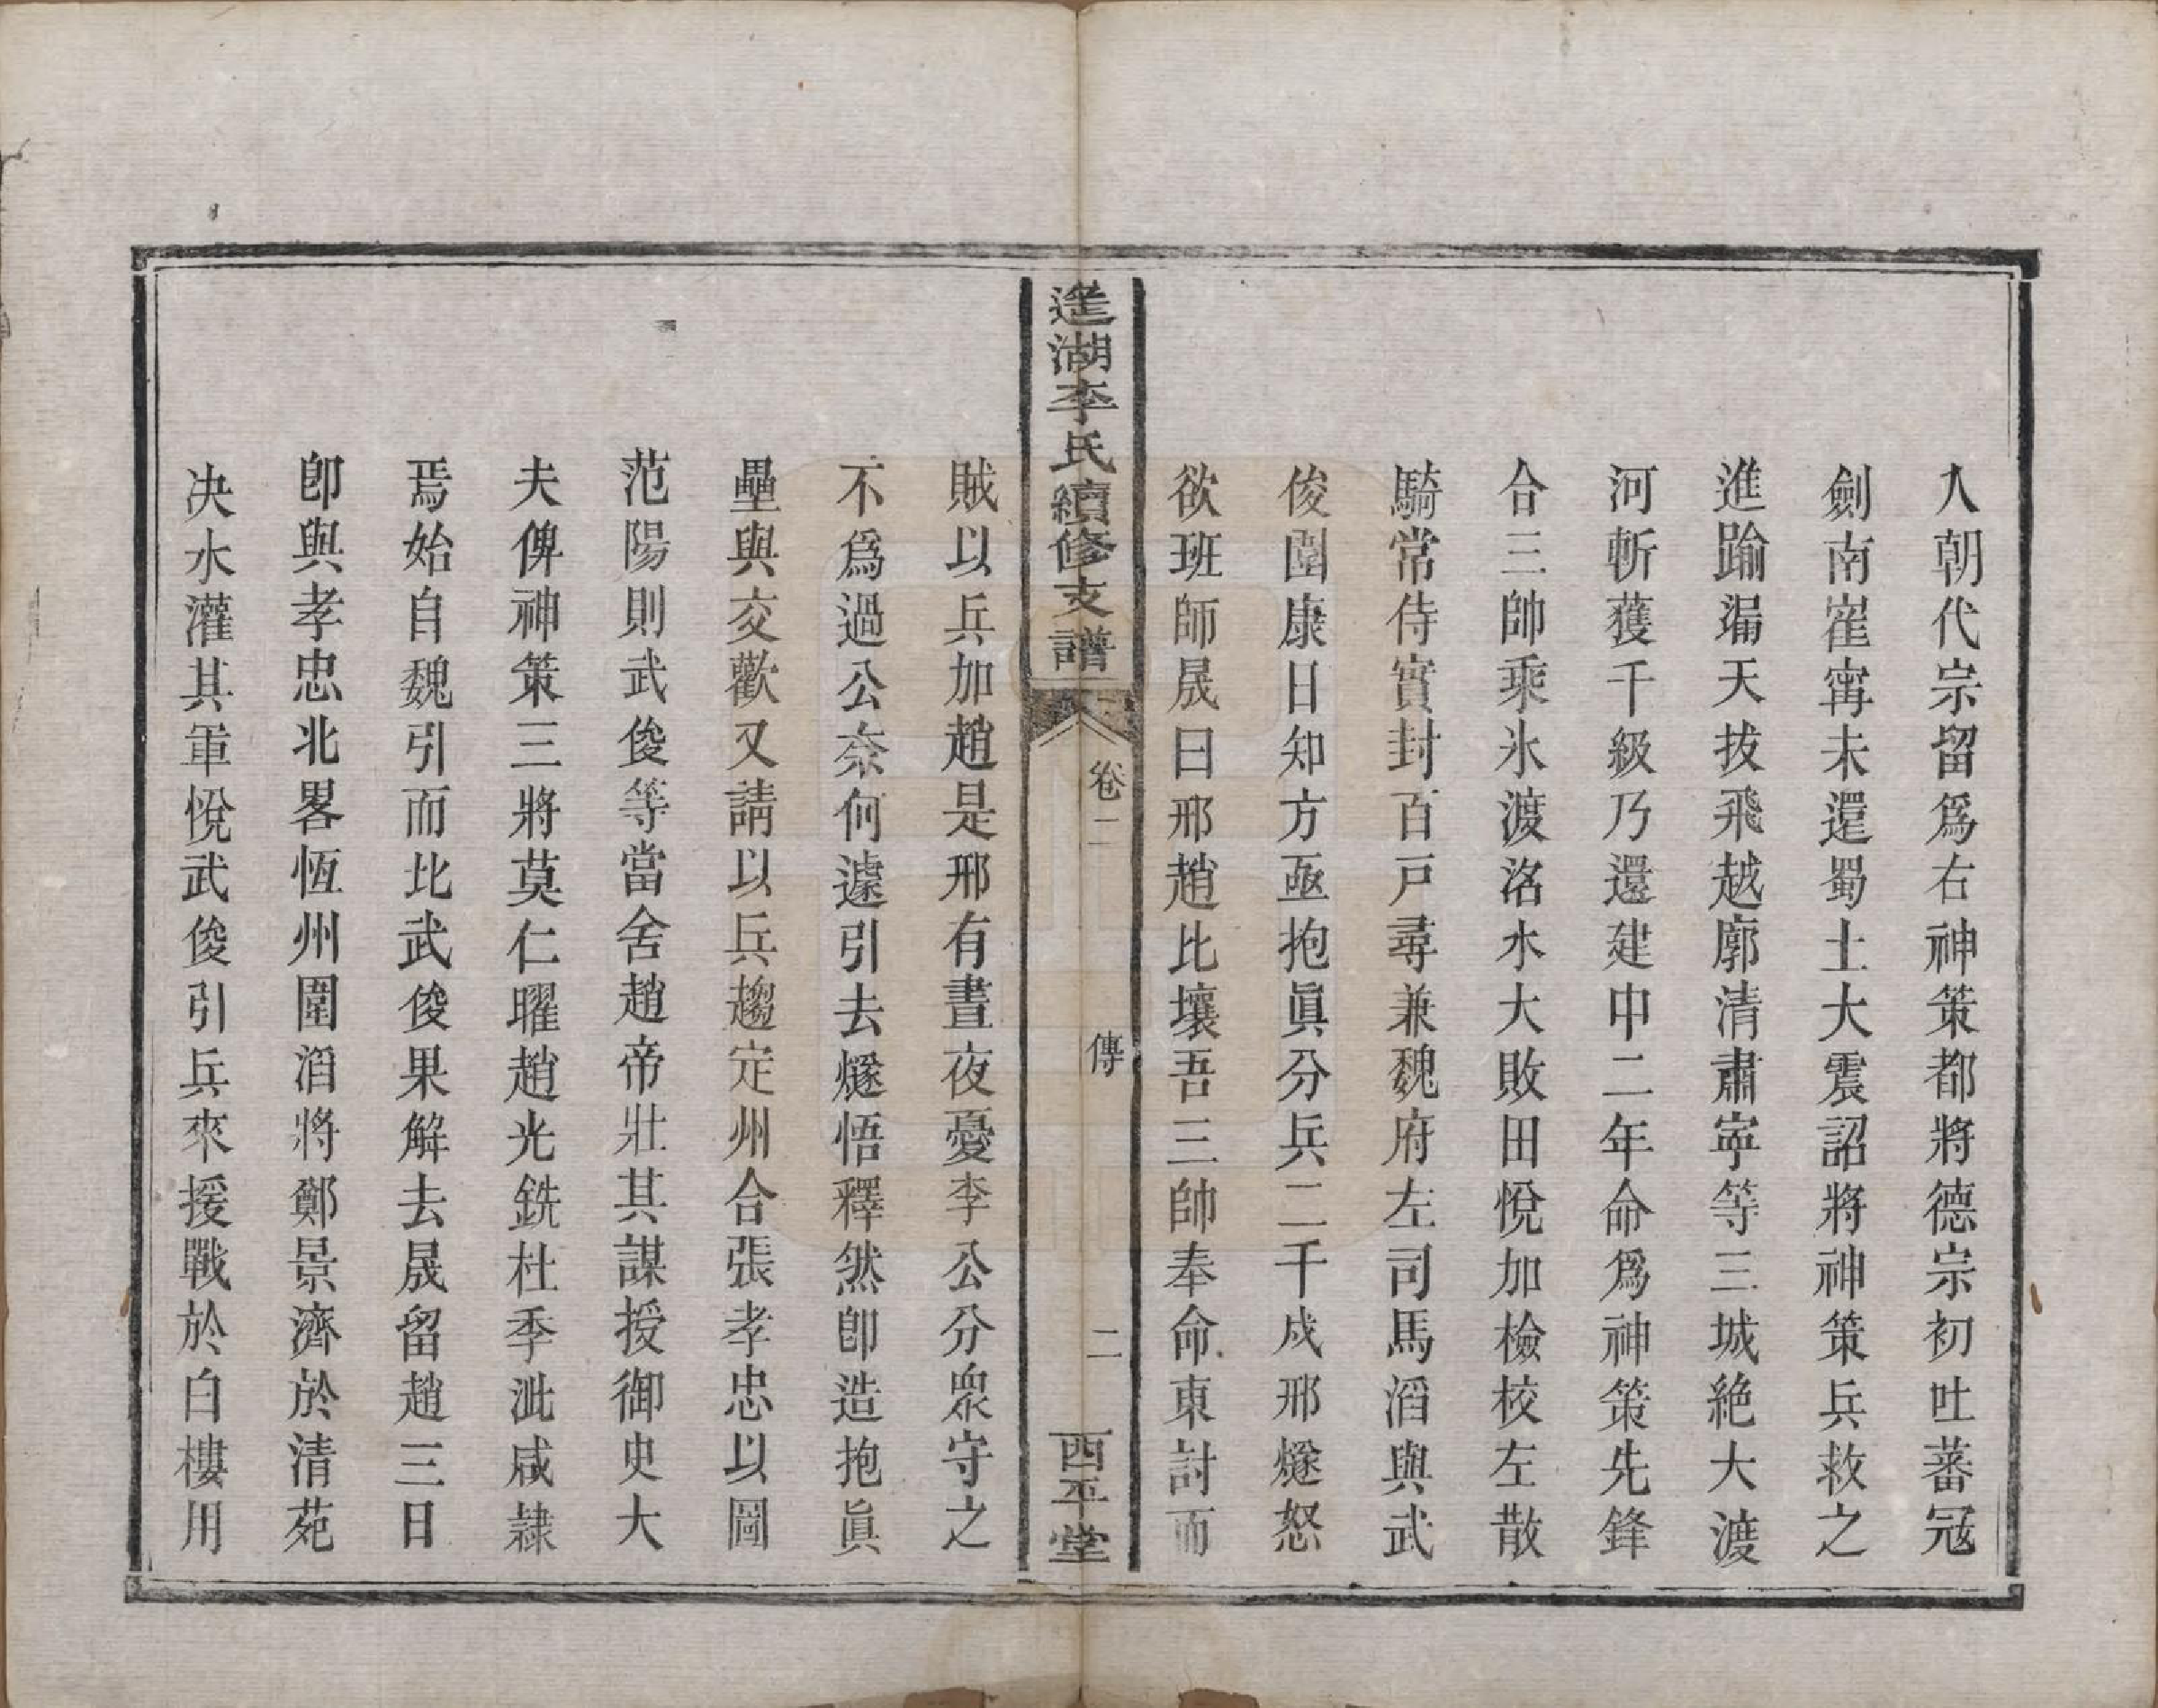 入朝代宗留爲右神策都將德宗初吐蕃冦
劍南寉寗未還蜀土大震詔將神策兵救之
進踰漏天拔飛越廓清肅寧等三城絶大渡
河斬獲千級乃還建中二年命爲神策先鋒
合三帥乘氷渡洺水大敗田悅加檢校左散
騎常侍實封百戸尋兼魏府左司馬滔與武
俊圍康日知方亟抱眞分兵二千戍邢燧怒
欲班師晟曰邢趙比壤吾三帥奉命東討而
進湖李氏續修支譜
卷二
傳
二
西平堂
賊以兵加趙是邢有晝夜憂李公分衆守之
不爲過公奈何遽引去燧悟釋然卽造抱眞
壘與交歡又請以兵趨定州合張孝忠以圖
范陽則武俊等當舍趙帝壯其謀授御史大
夫俾神策三將莫仁曜趙光銑杜季泚咸隷
焉始自魏引而北武俊果解去晟留趙三日
卽與孝忠北畧恆州圍滔將鄭景濟於清苑
決水灌其軍悅武俊引兵來援戰於白樓用